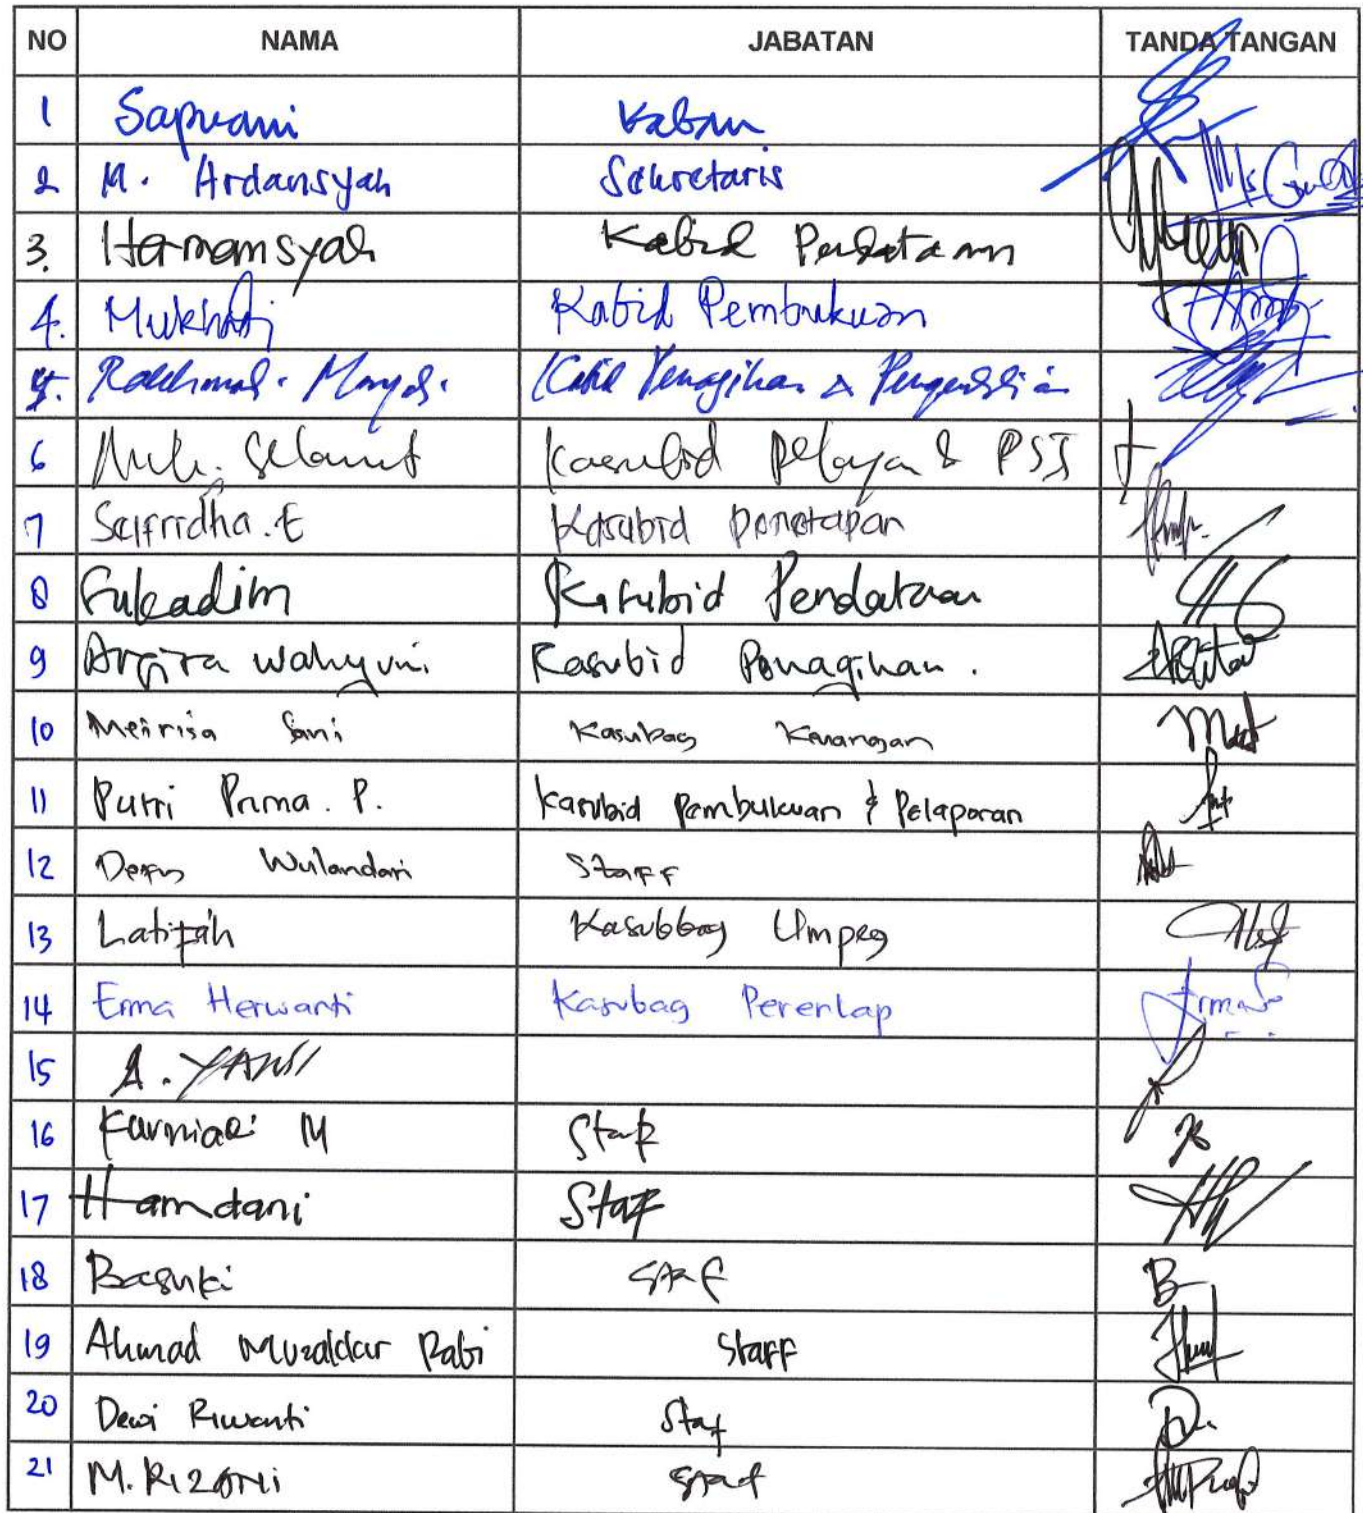 NO NAMA JABATAN TANDA TANGAN
1 Saprani Kaban
2 M. Ardansyah Sekretaris
3. Hermansyah Kabid
4. Mukhadj Kabid Pembukuan
5. Kabid Penagihan &
6 Muh. Selamat Kasubid & PSI
7 Saifridha. E Kasubid Penetapan
8 Sukadim Kasubid Pendataan
9 Argira Wahyuni. Kasubid Penagihan.
10 Meirisa Sani Kasubag Keuangan
11 Putri Prima. P. Kasubid Pembukuan & Pelaporan
12 Wulandari Staff
13 Latifah Kasubbag Umpeg
14 Erma Herwanti Kasubag Perenlap
15 A. YANI
16 M Staf
17 Hamdani Staf
18 Basuki Staf
19 Ahmad Rabi Staff
20 Dewi Riwanti Staf
21 M. Rizani Staf